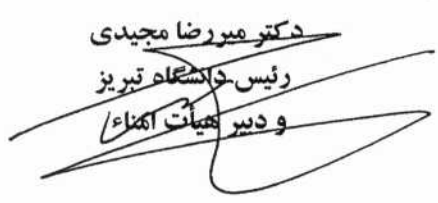 دکتر میررضا مجیدی
رئیس دانشگاه تبریز
و دبیر هیأت امناء